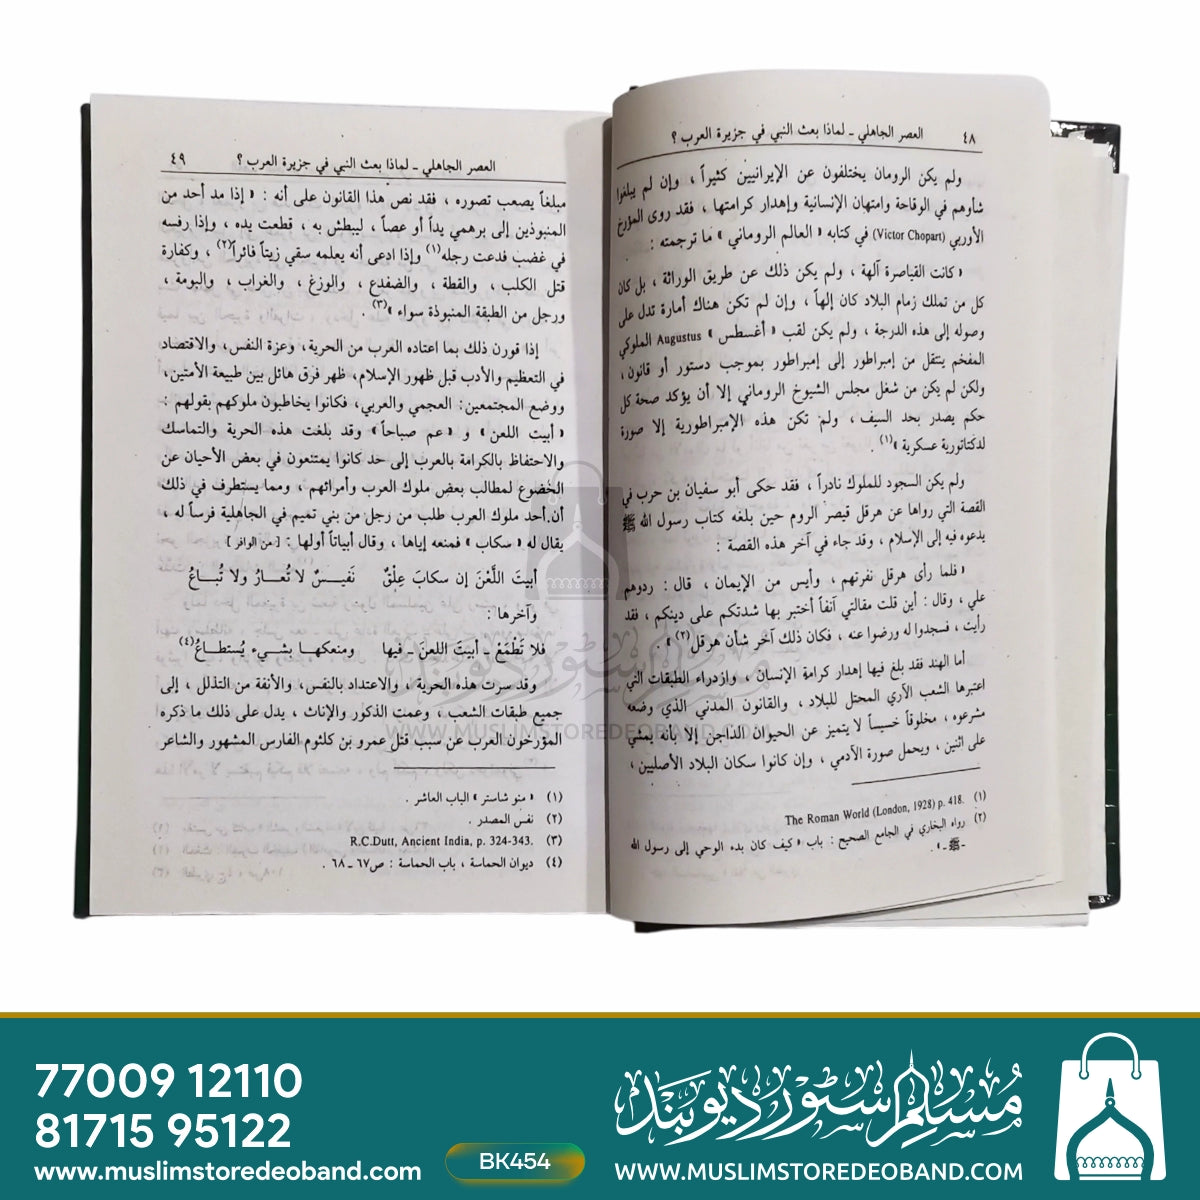 ٤٨ العصر الجاهلي ـ لماذا بعث النبي في جزيرة العرب ؟
ولم يكن الرومان يختلفون عن الإيرانيين كثيراً ، وإن لم يبلغوا
شأوهم في الوقاحة وامتهان الإنسانية وإهدار كرامتها ، فقد روى المؤرخ
الأوربي (Victor Chopart) في كتابه « العالم الروماني » ما ترجمته :
« كانت القياصرة آلهة ، ولم يكن ذلك عن طريق الوراثة ، بل كان
كل من تملك زمام البلاد كان إلهاً ، وإن لم تكن هناك أمارة تدل على
وصوله إلى هذه الدرجة ، ولم يكن لقب « أغسطس » Augustus الملوكي
المفخم ينتقل من إمبراطور إلى إمبراطور بموجب دستور أو قانون ،
ولكن لم يكن من شغل مجلس الشيوخ الروماني إلا أن يؤكد صحة كل
حكم يصدر بحد السيف ، ولم تكن هذه الإمبراطورية إلا صورة
لدكتاتورية عسكرية »(١) .
ولم يكن السجود للملوك نادراً ، فقد حكى أبو سفيان بن حرب في
القصة التي رواها عن هرقل قيصر الروم حين بلغه كتاب رسول الله ﷺ
يدعوه فيه إلى الإسلام ، وقد جاء في آخر هذه القصة :
« فلما رأى هرقل نفرتهم ، وأيس من الإيمان ، قال : ردوهم
علي ، وقال : أين قلت مقالتي آنفاً أختبر بها شدتكم على دينكم ، فقد
رأيت ، فسجدوا له ورضوا عنه ، فكان ذلك آخر شأن هرقل(٢) » .
أما الهند فقد بلغ فيها إهدار كرامة الإنسان ، وازدراء الطبقات التي
اعتبرها الشعب الآري المحتل للبلاد ، والقانون المدني الذي وضعه
مشرعوه ، مخلوقاً خسيساً لا يتميز عن الحيوان الداجن إلا بأنه يمشي
على اثنين ، ويحمل صورة الآدمي ، وإن كانوا سكان البلاد الأصليين ،
(١) The Roman World (London, 1928) p. 418.
(٢) رواه البخاري في الجامع الصحيح : باب « كيف كان بدء الوحي إلى رسول الله
ـ ﷺ ـ » .
العصر الجاهلي ـ لماذا بعث النبي في جزيرة العرب ؟ ٤٩
مبلغاً يصعب تصوره ، فقد نص هذا القانون على أنه : « إذا مد أحد من
المنبوذين إلى برهمي يداً أو عصاً ، ليبطش به ، قطعت يده ، وإذا رفسه
في غضب فدعت رجله(١) وإذا ادعى أنه يعلمه سقي زيتاً فائراً(٢) ، وكفارة
قتل الكلب ، والقطة ، والضفدع ، والوزغ ، والغراب ، والبومة ،
ورجل من الطبقة المنبوذة سواء »(٣) .
إذا قورن ذلك بما اعتاده العرب من الحرية، وعزة النفس، والاقتصاد
في التعظيم والأدب قبل ظهور الإسلام، ظهر فرق هائل بين طبيعة الأمتين،
ووضع المجتمعين: العجمي والعربي، فكانوا يخاطبون ملوكهم بقولهم :
« أبيت اللعن » و « عم صباحاً » وقد بلغت هذه الحرية والتماسك
والاحتفاظ بالكرامة بالعرب إلى حد كانوا يمتنعون في بعض الأحيان عن
الخضوع لمطالب بعض ملوك العرب وأمرائهم ، ومما يستطرف في ذلك
أن أحد ملوك العرب طلب من رجل من بني تميم في الجاهلية فرساً له ،
يقال له « سكاب » فمنعه إياها ، وقال أبياتاً أولها : [ من الوافر ]
أبيتَ اللَّعْنَ إن سكابَ عِلْقٌ نَفيـسٌ لا تُعـارُ ولا تُبـاعُ
وآخرها :
فلا تَطْمَعْ ـ أبيتَ اللعنَ ـ فيها ومنعكهـا بشيءٍ يُستطـاعُ(٤)
وقد سرت هذه الحرية ، والاعتداد بالنفس، والأنفة من التذلل ، إلى
جميع طبقات الشعب ، وعمت الذكور والإناث ، يدل على ذلك ما ذكره
المؤرخون العرب عن سبب قتل عمرو بن كلثوم الفارس المشهور والشاعر
(١) « منو شاستر » الباب العاشر .
(٢) نفس المصدر .
(٣) R.C.Dutt, Ancient India, p. 324-343.
(٤) ديوان الحماسة ، باب الحماسة : ص٦٧ ـ ٦٨ .
مسلم سٹور دیوبند
WWW.MUSLIMSTOREDEOBAND.COM
77009 12110
81715 95122
www.muslimstoredeoband.com
BK454
مسلم سٹور دیوبند
WWW.MUSLIMSTOREDEOBAND.COM